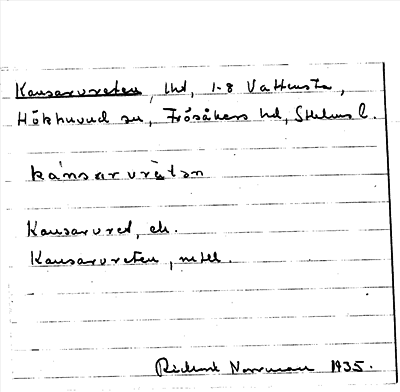 Kansarvreten, lhd, 1-8 Vattensta,
Hökhuvud sn, Frösåkers hd, Sthlms l.
kánsarvrètən
Kansarvret, ek.
Kansarvreten, mtll.
Rickard Norrman 1935.